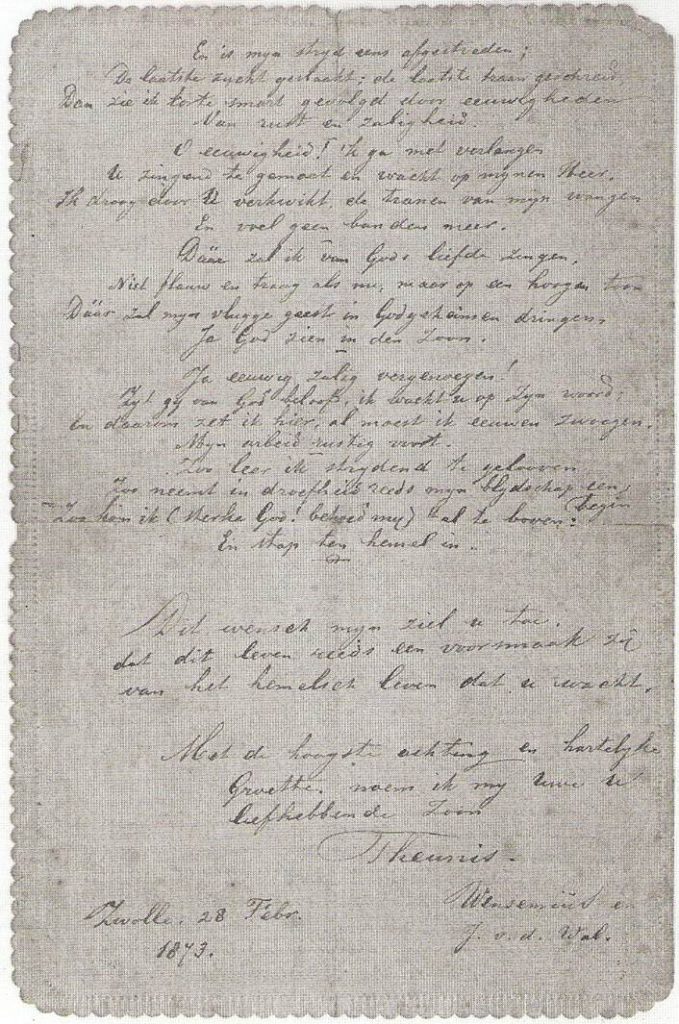 En is myn stryd eens afgestreden;
De laatste zucht geslaakt; de laatste traan geschreid,
Dan zie ik korte smart gevolgd door eeuwigheden
Van rust en zaligheid.
O eeuwigheid! 'k ga met verlangen
U zingend te gemoet en wacht op mynen Heer.
Ik droog door U verkwikt, de tranen van myn wangen
En voel geen banden meer.
Däär zal ik van Gods liefde zingen,
Niet flauw en traag als nu, maar op een hoogen toon
Däär zal myn vlugge geest in Godgeheimen dringen,
Ja God zien in den Zoon.
Ja eeuwig zalig vergenoegen!
Zyt gy van God beloofd, ik wacht u op Zyn woord;
En daarom zet ik hier, al moest ik eeuwen zwoegen,
Myn arbeid rustig voort.
Zoo leer ik strydend te gelooven
Zoo neemt in droefheid reeds myn blydschap een begin
Zoo kom ik (Sterke God! behoed my) al te boven:
En stap ten hemel in.
Dit wensch myn ziel u toe.
dat dit leven reeds een voorsmaak zij
van het hemelsch leven dat u wacht.
Met de hoogste achting en hartelyke
Groette. noem ik my Uwe U
liefhebbende Zoon
Theunis.
Zwolle. 28 Febr.
1873.
en
J. v. d. Wal.